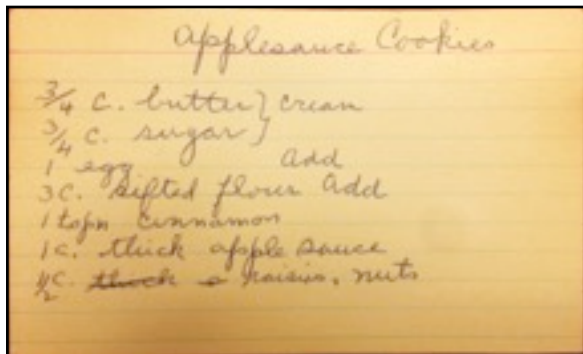 Applesauce Cookies
3/4 c. butter } cream
3/4 c. sugar }
1 egg add
3c. sifted flour add
1 tspn cinnamon
1c. thick apple sauce
1/2 c. thick raisins, nuts